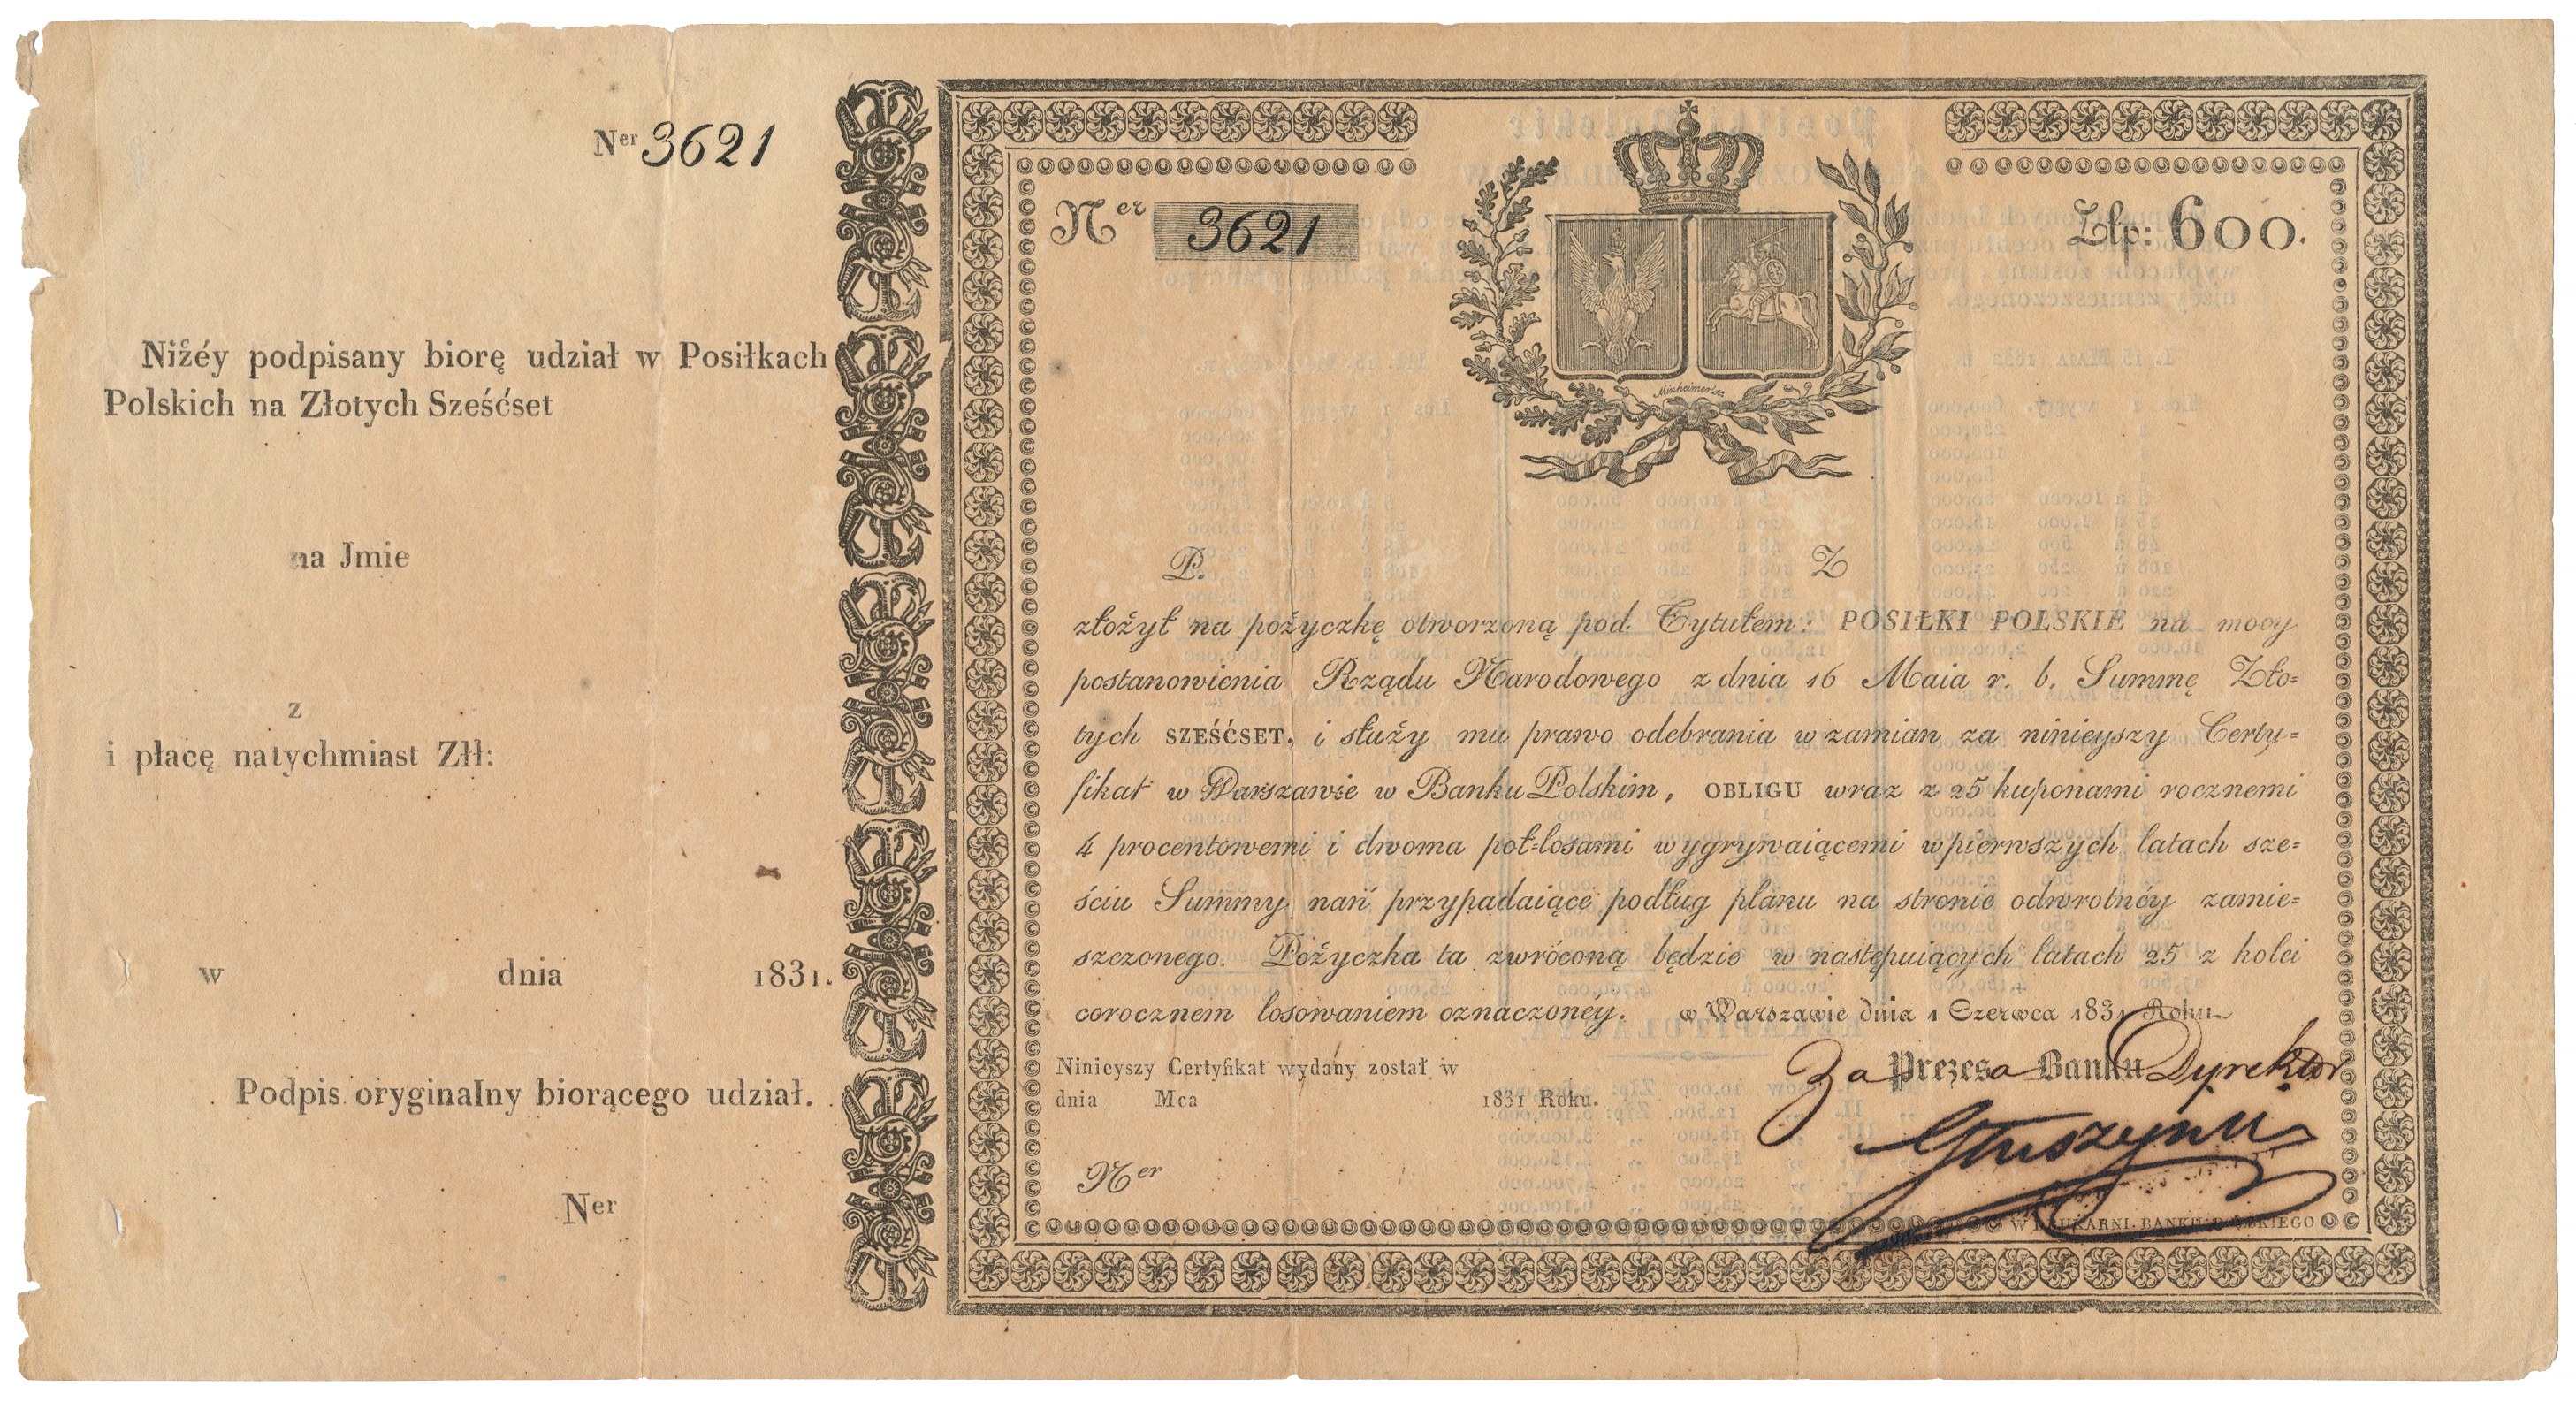 Ner 3621
Niżéy podpisany biorę udział w Posiłkach
Polskich na Złotych Sześćset
na Jmie
z
i płacę natychmiast Złł:
w dnia 1831.
Podpis oryginalny biorącego udział.
Ner
Ner 3621
Złp: 600.
Minheimer sc
P. Z
złożył na pożyczkę otworzoną pod Tytułem: POSIŁKI POLSKIE na mocy
postanowienia Rządu Narodowego z dnia 16 Maia r. b. Summę Zło=
tych SZEŚĆSET, i służy mu prawo odebrania w zamian za ninieyszy Certy=
fikat w Warszawie w Banku Polskim, OBLIGU wraz z 25 kuponami rocznemi
4 procentowemi i dwoma pół=losami wygrywaiącemi w pierwszych latach sze=
ściu Summy nań przypadaiące podług planu na stronie odwrotnéy zamie=
szczonego. Pożyczka ta zwróconą będzie w następuiących latach 25 z kolei
corocznem losowaniem oznaczonéy. w Warszawie dnia 1 Czerwca 1831 Roku
Ninieyszy Certyfikat wydany został w
dnia Mca 1831 Roku.
Za Prezesa Banku Dyrektor
Ner
W DRUKARNI BANKU POLSKIEGO